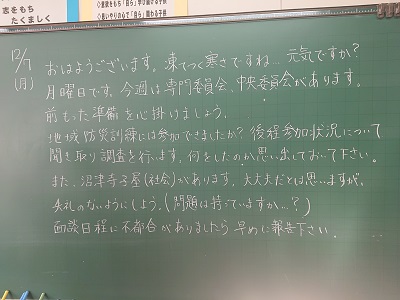 志をもち
たくましく
◇意欲をもち「自ら」学び
◇思いやりの心で「自ら」関わる子供
12/7
(月)
おはようございます。凍てつく寒さですね…元気ですか?
月曜日です。今週は専門委員会、中央委員会があります。
前もった準備を心掛けましょう。
地域防災訓練には参加できましたか?後程参加状況について
聞き取り調査を行います。何をしたのか思い出しておいて下さい。
また、沼津寺子屋(社会)があります。大丈夫だとは思いますが、
失礼のないようにしよう。(問題は持っていますか…?)
面談日程に不都合がありましたら早めに報告下さい。